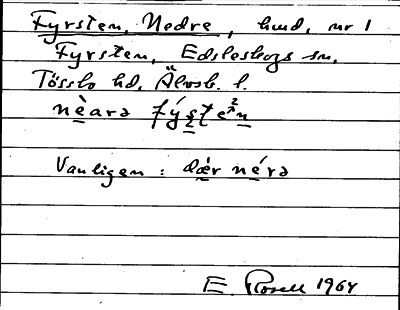 Fyrsten, Nedre, hmd, nr 1
Fyrsten, Edsleskogs sn,
Tössbo hd, Älvsb. l.
nèarə fýste²n
Vanligen: dæ̀r nérə
E. Rosell 1964